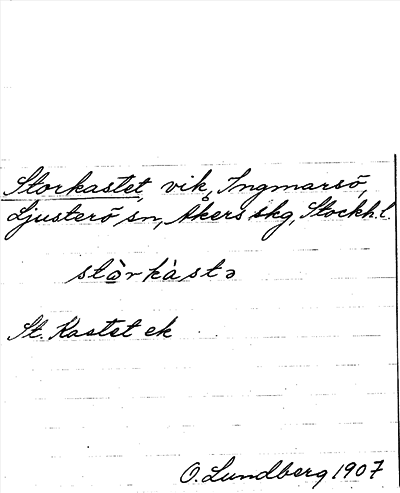 Storkastet, vik, Ingmarsö,
Ljusterö sn, Åkers skg, Stockh.l.
stòrkàstə
St. Kastet ek
O. Lundberg 1907